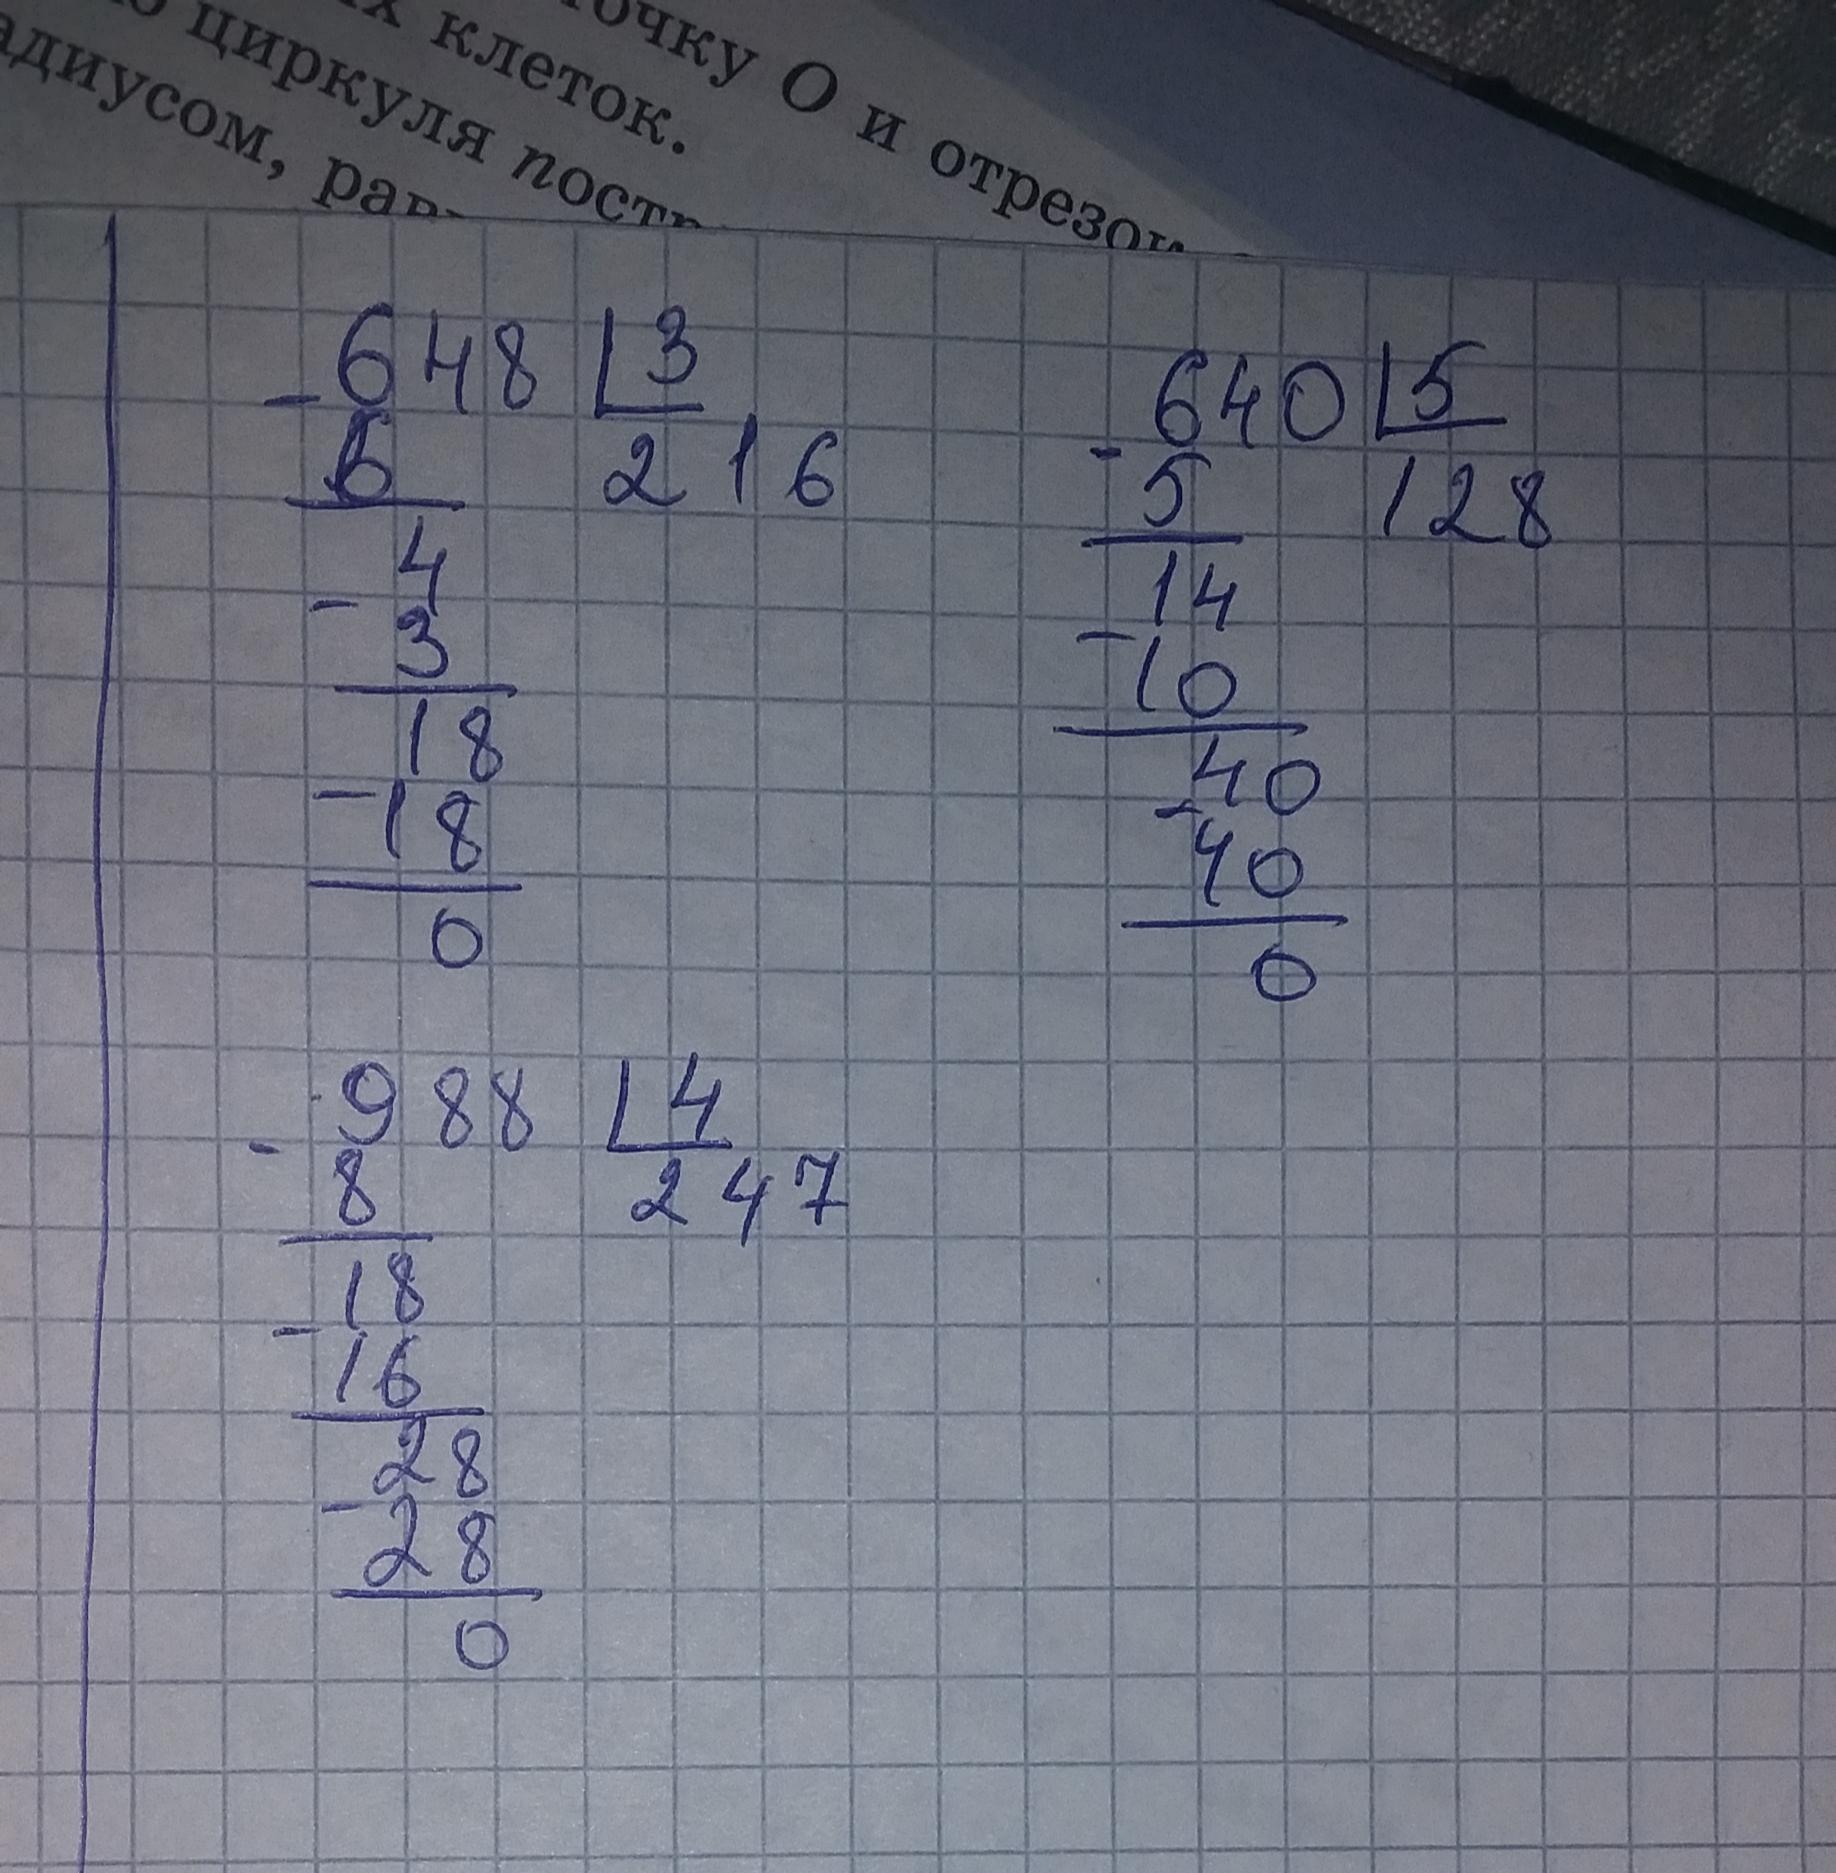 точку О и отрезок
х клеток.
циркуля постр
адиусом, рав
648 3
- 6 216
4
- 3
18
- 18
0
640 5
- 5 128
14
- 10
40
- 40
0
988 4
- 8 247
18
- 16
28
- 28
0